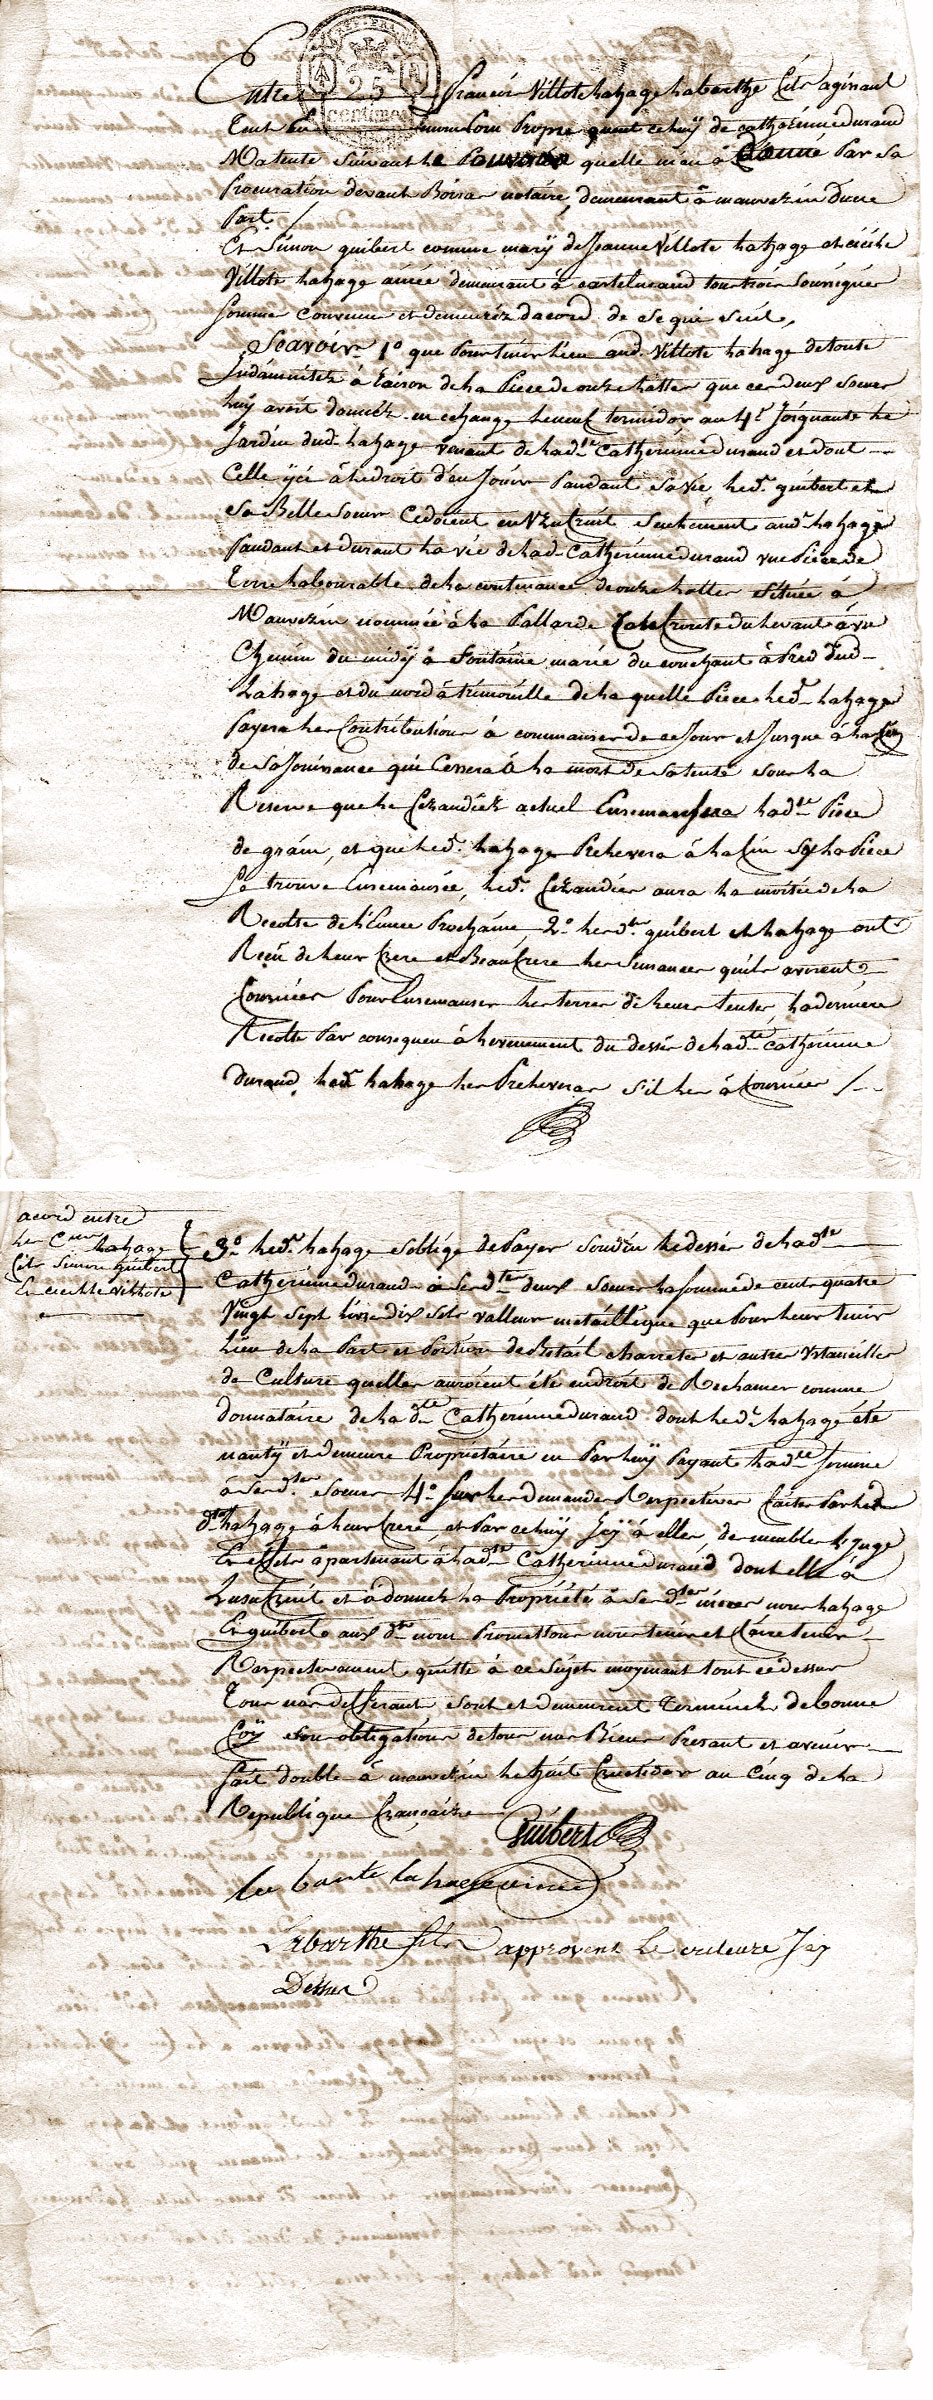 Entre francois Villote lahage labarthe fils agissant
tant en mon nom Propre quent celuy de catherinne durand
Ma tente suivant le Pouvoir quelle m'en à Donné Par sa
Procuration devant notaire, demeurant à mauvezin d'une
Part /
Et Simon guibert comme mary de Jeanne Villote lahage et cécile
Villote lahage ainée demeurant à castelneaud tous trois soussignés
somme convenu et demeurés dacord de se qui suit,
Scavoir 1º que Pour tenir lieu aud. Villote lahage de toute
Indamnitéz à Raison de la Piece de onze lattes que ces deux soeurs
luy avoit donnéz en echange le neuf termidor an 4e Joignante le
Jardin dud. lahage venant de lad.te Catherinne durand et dont
Celle ÿci à le droit d'en Jouir Pandant sa vie, led. guibert et
sa Belle soeur Cedoient en Uzufruit seulement aud. lahage
Pandant et durant la vie de lad. Catherinne durand une Piece de
terre labourable de la contenance de onze lattes située à
Mauvezin nommée à la Pallarde Confronte du levant à un
Chemin du midÿ à fontaine marie du couchant à Pred dud.
Lahage et du nord à trimouille de la quelle Piece led. lahage
Payera les Contributions à commanser de ce Jour et Jusque à la fin
de sa Jouissance qui Cessera à la mort de sa tente sous la
Reserve que le fezandiez actuel Ensemansera lad.te Piece
de grain, et que led. lahage Prelevera à la fin sy la Piece
se trouve Ensemansée, led. fezandier aura la moitié de la
Recolte de l'année Prochaine 2º les d.ts guibert et lahage ont
Reçu de leur frere et Beaufrere les semances quils avoient
fournies Pour Ensemanser les terres de leurs tentes, la derniere
Recolte Par consequen à levenement du dessés de lad.te Catherinne
durand, led. lahage les Prelevera s'il les à fournies /
acord entre
les C.en lahage
fils Simon guibert
Et cecille villote
3º led. lahage soblige de Payer soudin le dessés de lad.te
Catherinne durand à ses d.tes deux soeurs la somme de cent quatre
Vingt sept livre dix sols valleur metallique que Pour leur tenir
Lieu de la Part et Portion de Betail charretes et autres Ustancilles
de Culture quelles auroient été en droit de Reclamer comme
donnataire de la d.te Catherinne durand dont led. lahage été
nantÿ et demeure Propriétaire en Par luÿ Payant lad.te somme
à ses d.tes soeurs 4º sur les demandes Respectives faites Par led
d.t lahage à leur frere, et Par celuÿ Icÿ à elles, de meuble Linge
Et effets apartenant à lad.te Catherinne durand dont elle à
Lusufruit et à donnéz la Propriété à ses d.tes nieces nous lahage
Et guibert aux d.tes nous Promettons nous tenir et faire tenir
Respectivement quitte à ce sujet moyenant tout ce dessus
Tous nos differant sont et demeurent terminéz de bonne
foÿ sous obligations de tous nos Biens Presant et avenir
fait double à mauvezin le huit fructidor an Cinq de la
Republique française
Guibert
lahage ainée
Labarthe fils approvent Le criteure Ja7
Dessus